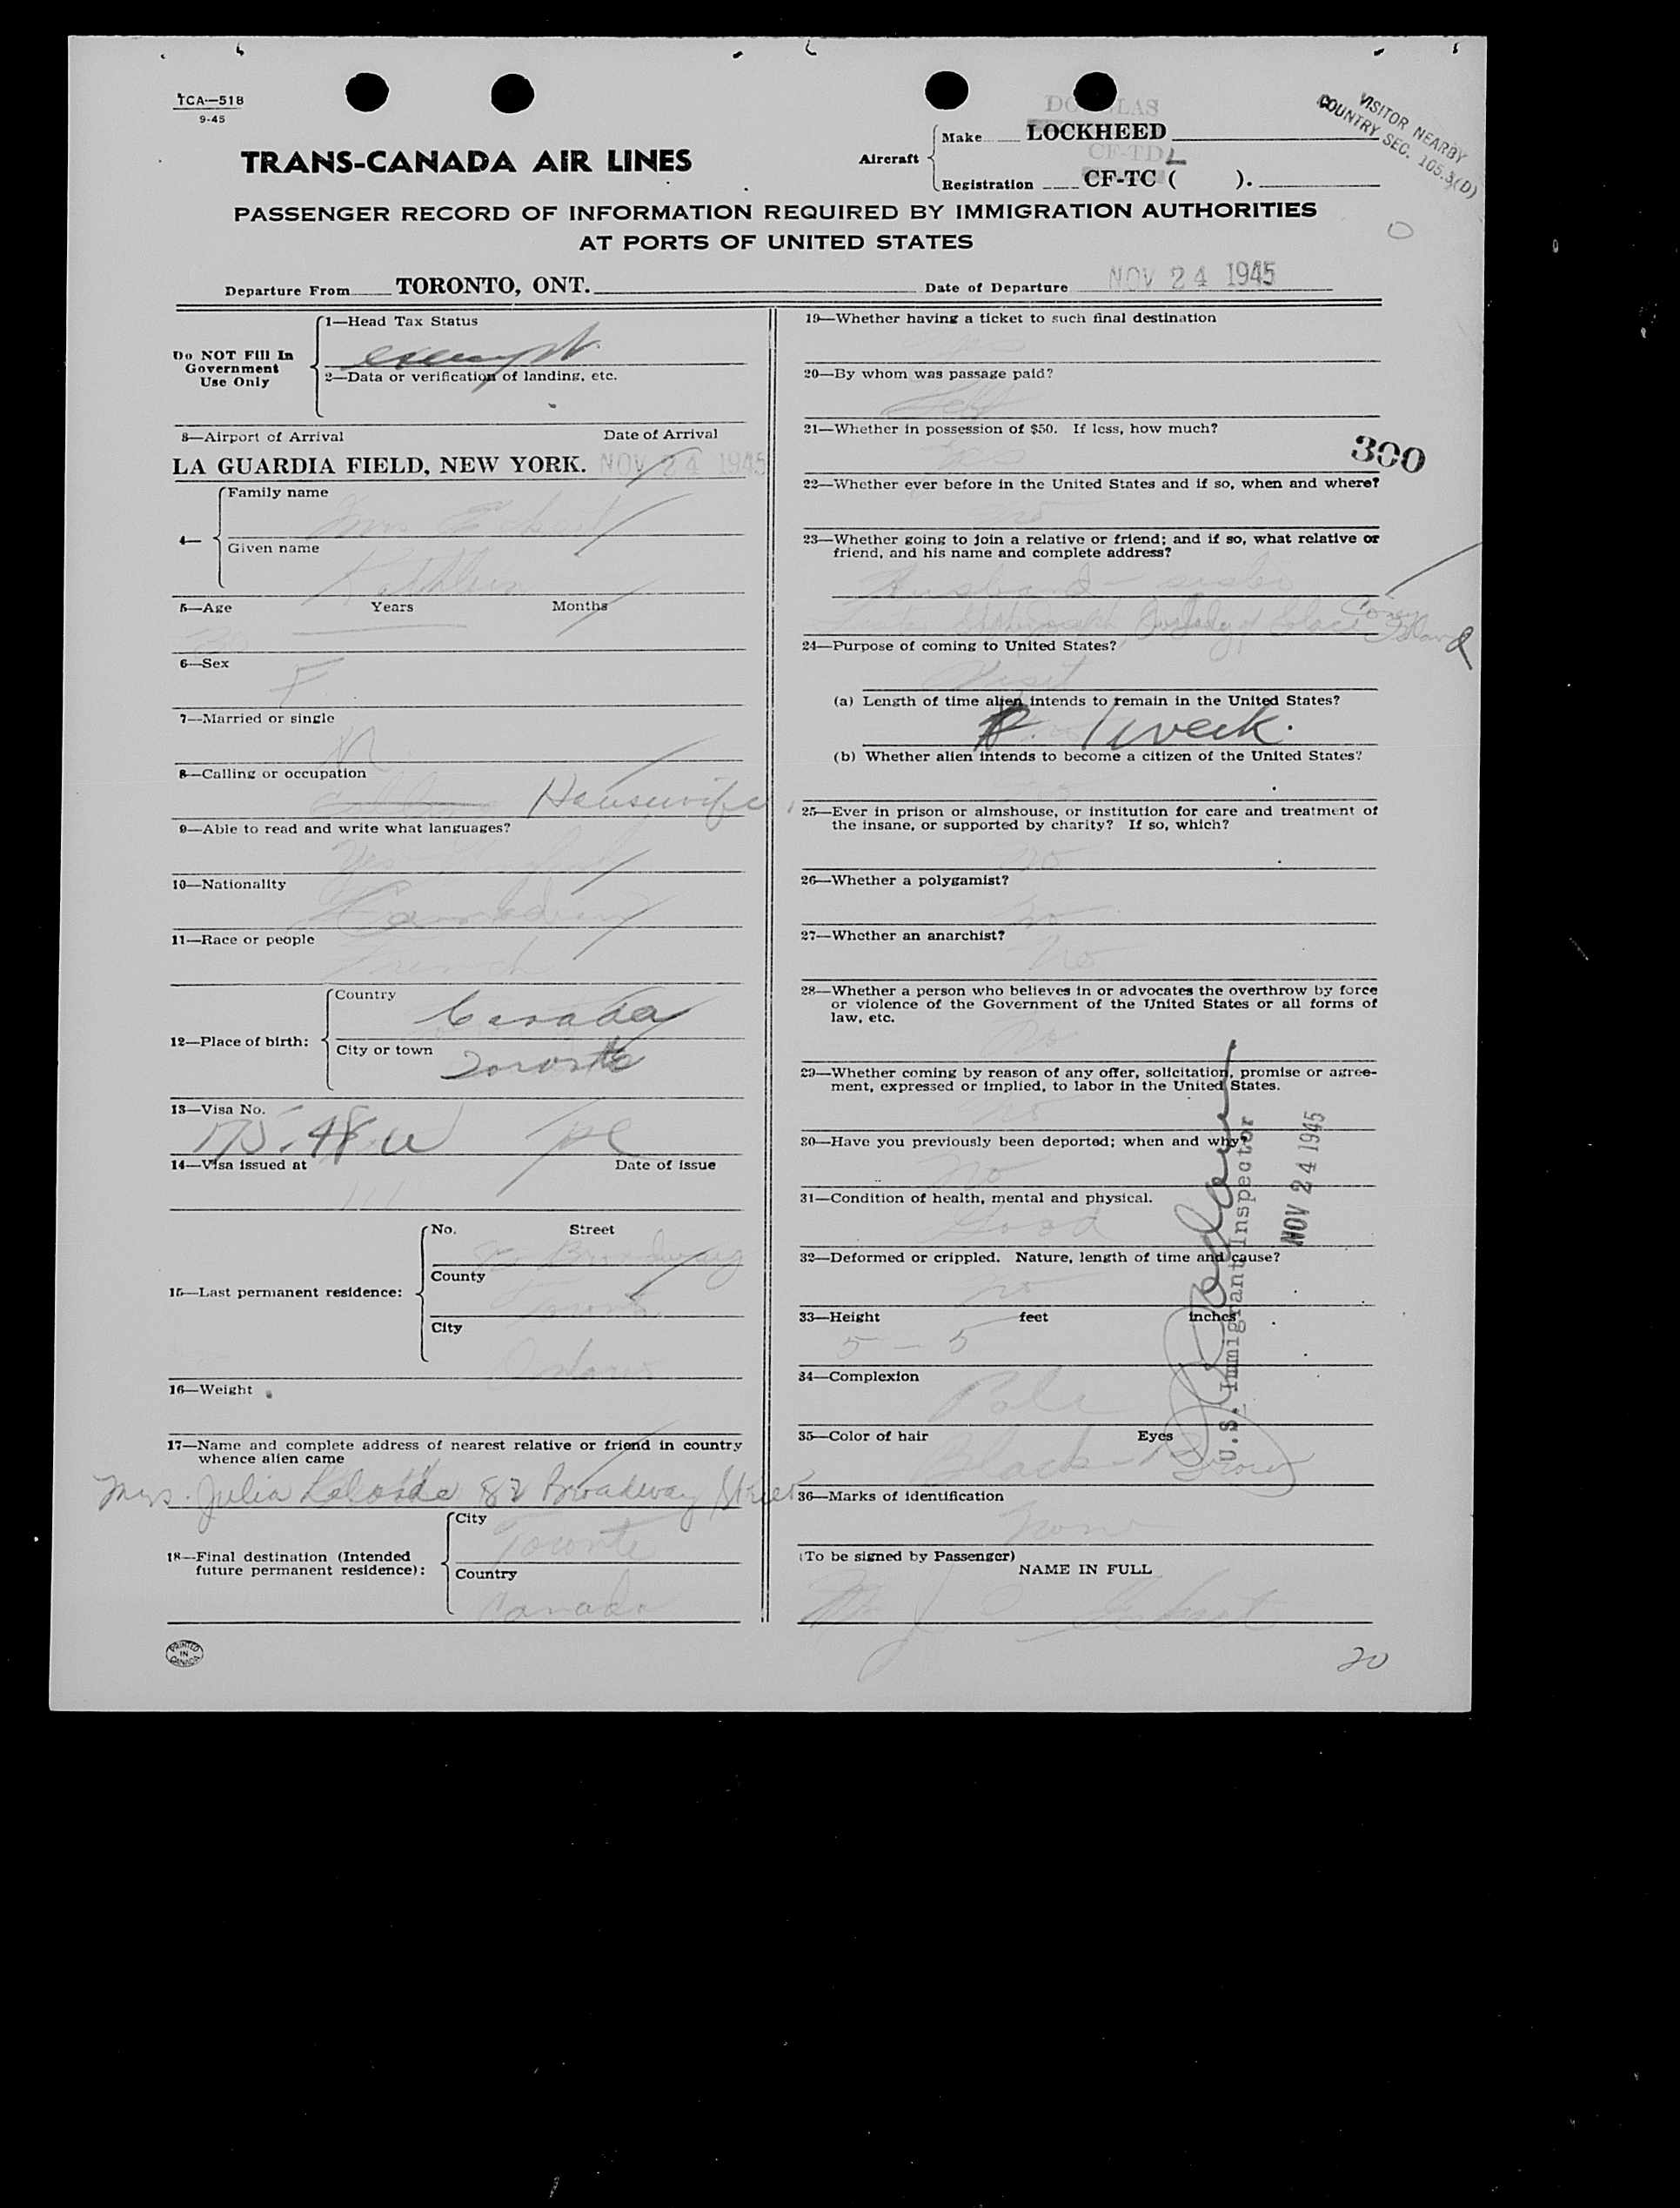 TCA—518
9-45
VISITOR NEARBY
COUNTRY SEC. 105.3(D)
TRANS-CANADA AIR LINES
Aircraft
DOUGLAS
Make LOCKHEED
CF-TDL
Registration CF-TC ( ).
PASSENGER RECORD OF INFORMATION REQUIRED BY IMMIGRATION AUTHORITIES
AT PORTS OF UNITED STATES
Departure From TORONTO, ONT. Date of Departure NOV 24 1945
Do NOT Fill In
Government
Use Only
1—Head Tax Status
exempt
2—Data or verification of landing, etc.
3—Airport of Arrival Date of Arrival
LA GUARDIA FIELD, NEW YORK. NOV 24 1945
4—
Family name
Given name
Kathleen
5—Age Years Months
30
6—Sex
F
7—Married or single
M
8—Calling or occupation
Housewife
9—Able to read and write what languages?
Yes English
10—Nationality
Canadian
11—Race or people
French
12—Place of birth:
Country
Canada
City or town
Toronto
13—Visa No.
175.48 a
14—Visa issued at Date of issue
15—Last permanent residence:
No. Street
82 Broadway
County
Toronto
City
Ontario
16—Weight
17—Name and complete address of nearest relative or friend in country
whence alien came
Mrs. Julia Lalonde 82 Broadway Street
18—Final destination (Intended
future permanent residence):
City
Toronto
Country
Canada
PRINTED
IN
CANADA
19—Whether having a ticket to such final destination
Yes
20—By whom was passage paid?
Self
21—Whether in possession of $50. If less, how much?
Yes
300
22—Whether ever before in the United States and if so, when and where?
no
23—Whether going to join a relative or friend; and if so, what relative or
friend, and his name and complete address?
Husband – sister
Coney Island
24—Purpose of coming to United States?
Visit
(a) Length of time alien intends to remain in the United States?
1 week.
(b) Whether alien intends to become a citizen of the United States?
25—Ever in prison or almshouse, or institution for care and treatment of
the insane, or supported by charity? If so, which?
no
26—Whether a polygamist?
no
27—Whether an anarchist?
no
28—Whether a person who believes in or advocates the overthrow by force
or violence of the Government of the United States or all forms of
law, etc.
no
29—Whether coming by reason of any offer, solicitation, promise or agree-
ment, expressed or implied, to labor in the United States.
no
30—Have you previously been deported; when and why?
no
31—Condition of health, mental and physical.
Good
32—Deformed or crippled. Nature, length of time and cause?
no
33—Height feet inches
5 – 5
34—Complexion
Pale
35—Color of hair Eyes
Black – Brown
36—Marks of identification
none
(To be signed by Passenger)
NAME IN FULL
U.S. Immigrant Inspector
NOV 24 1945
20